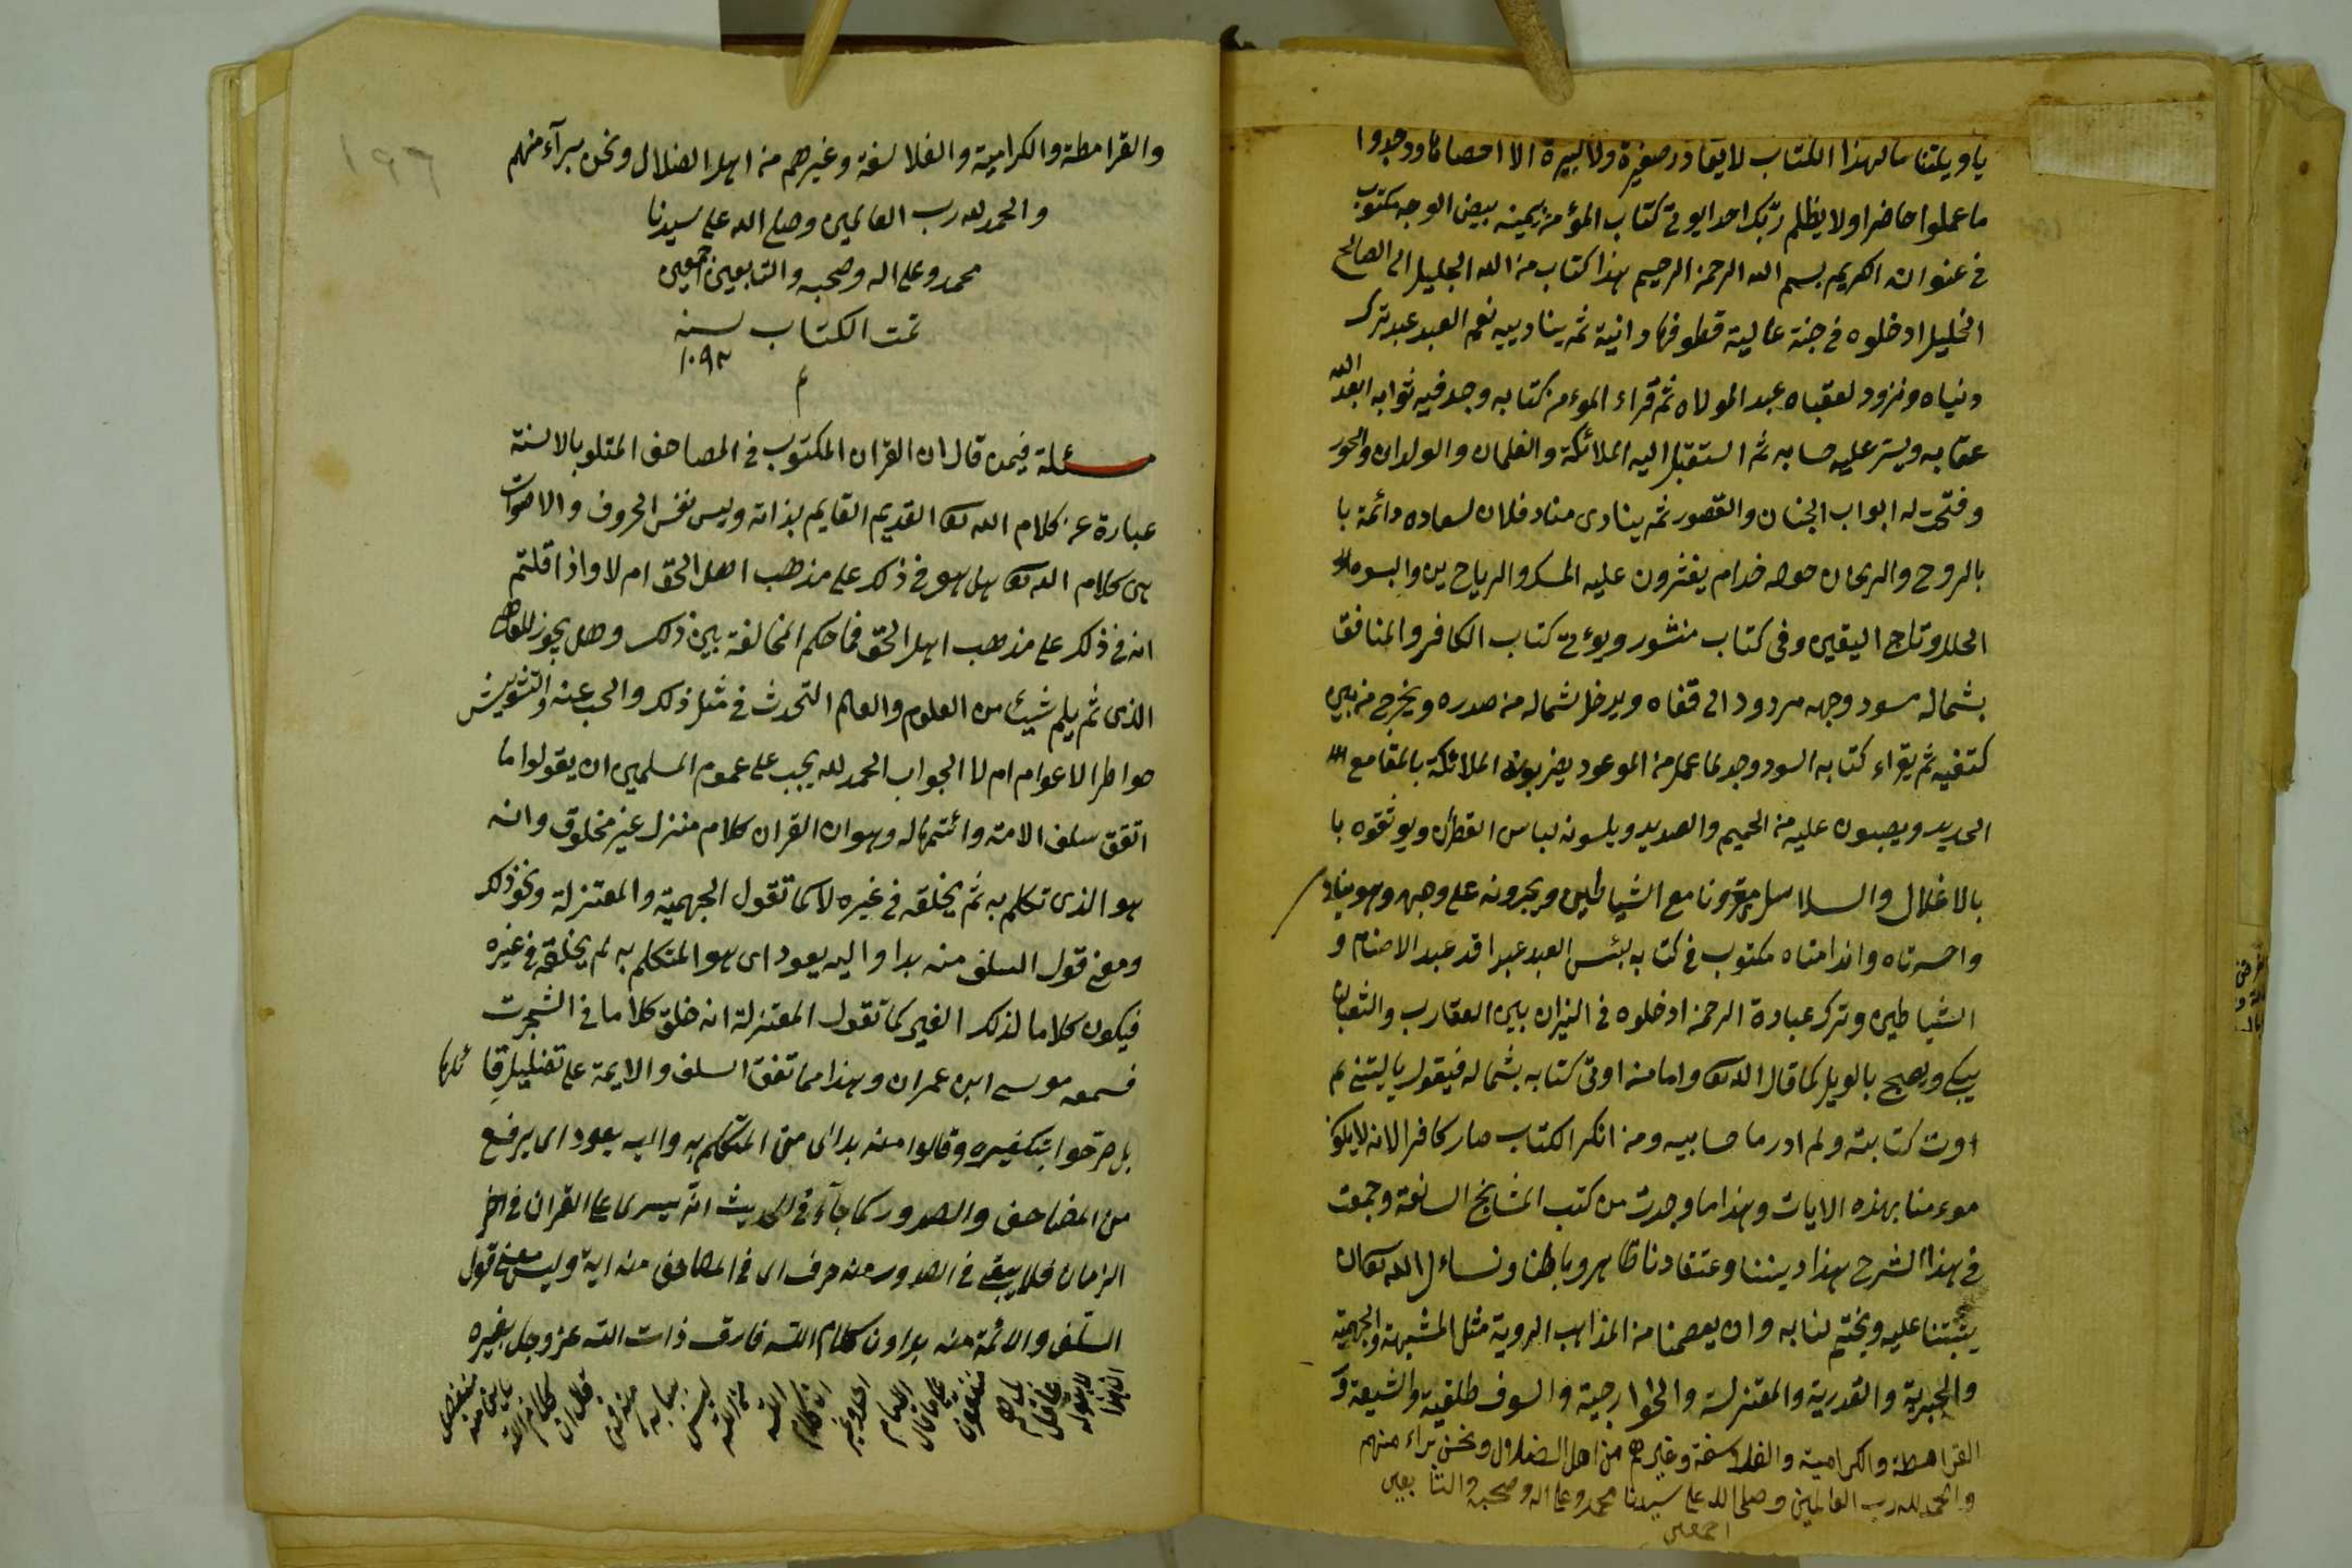 يا ويلتنا مال هذا الكتاب لا يغادر صغيرة ولا كبيرة الا احصاها ووجدوا
ما عملوا حاضرا ولا يظلم ربك احدا يوتى كتاب المؤمن بيمينه بيض الوجه مكتوب
فى عنوانه الكريم بسم الله الرحمن الرحيم هذا كتاب من الله الجليل الى الصالح
الخليل ادخلوه فى جنة عالية قطوفها دانية ثم ينادييه نعم العبد عبد ترك
دنياه وتزود لعقباه عبد المولاه ثم قراء الموءمن كتابه وجد فيه ثوابه ابعد الله
عقابه ويستر عليه حسابه ثم استقبل اليه الملائكة والغلمان والولدان والحور
وفتحت له ابواب الجنان والقصور ثم ينادى مناد فلان لسعاده دائمة با
بالروح والريحان حوله خدام يغثرون عليه المسك والرياحين والبسوه
الحلل وتاج اليقين وفى كتاب منشور ويوءتى كتاب الكافر والمنافق
بشماله مسود وجهه مردود الى قفاه ويدخل شماله من صدره ويخرج من بين
كتفيه ثم يقراء كتابه السود وجد لما عمل من الموعود يضربونه الملائكة بالمقامع
الحديد ويصبون عليه من الحميم والصديد ويلبسونه لباس القطران ويوثقوه با
بالاغلال والسلاسل مقرونا مع الشياطين ويجرونه على وجهه وهو يناد
واحسرتاه واندامتاه مكتوب فى كتابه بئس العبد عبدا قد عبد الاصنام و
الشياطين وترك عبادة الرحمن ادخلوه فى النيران بين العقارب والثعبان
يبكى ويصيح بالويل كما قال الله تعالى واما من اوتى كتابه بشماله فيقول يا ليتنى لم
اوت كتابيه ولم ادر ما حسابيه ومن انكر الكتاب صار كافرا لانه لا يكون
موءمنا بهذه الايات وهذا ما وجدت من كتب المشايخ السالفة وجمعت
فى هذا الشرح هذا ديننا وعتقادنا ظاهر وباطنا ونساءل الله تعالى ان
يثبتنا عليه ويختم لنا به وان يعصمنا من المذاهب الردية مثل المشبهة والجهمية
والجبرية والقدرية والمعتزلة والخوارجية والسوفسطلقية والشيعة و
القرامطة والكرامية والفلاسفة وغيرهم من اهل الضلال ونحن براء منهم
والحمد لله رب العالمين وصلى الله على سيدنا محمد وعلى اله وصحبه والتابعين
اجمعين
١٩٦
والقرامطة والكرامية والفلاسفة وغيرهم من اهل الضلال ونحن برآء منهم
والحمد لله رب العالمين وصلى الله على سيدنا
محمد وعلى اله وصحبه والتابعين اجمعين
تمت الكتاب سنه
١٠٩٣
م
مسئلة فيمن قال ان القران المكتوب فى المصاحف المتلو بالالسنة
عبارة عن كلام الله تعالى القديم القايم بذاته وليس نفس الحروف والاصوات
هى كلام الله تعالى هل هو فى ذلك على مذهب اهل الحق ام لا واذا قلتم
انه فى ذلك على مذهب اهل الحق فما حكم المخالفة بين ذلك وهل يجوز للعام
الذى ثم يلم شيئا من العلوم والعالم التحدث فى مثل ذلك والحب عنه والتشويش
خواطر الاعوام ام لا الجواب الحمد لله يجب على عموم المسلمين ان يقولوا ما
اتفق سلف الامة وائمتها له وهو ان القران كلام منزل غير مخلوق وانه
هو الذى تكلم به ثم يخلقه فى غيره لا كما تقول الجهمية والمعتزلة ونحو ذلك
ومعنى قول السلف منه بدا واليه يعود اى هو المتكلم به لم يخلقه فى غيره
فيكون كلاما لذلك الغير كما تقول المعتزلة انه خلق كلاما فى الشجرت
فسمعه موسى ابن عمران وهذا مما تفق السلف والايمة على تضليل قائلها
بل صرحوا بتكفيره وقالوا منه بدا اى من المتكلم به واليه يعود اى يرفع
من المصاحف والصدور كما جآء فى الحديث انه يسرى على القران فى اخر
الزمان فلا يبقى فى الصدور منه حرف اى فى المصاحف منه اية وليس معنى قول
السلف والائمة منه بدا ون كلام الله فارق ذات الله عز وجل بغيره